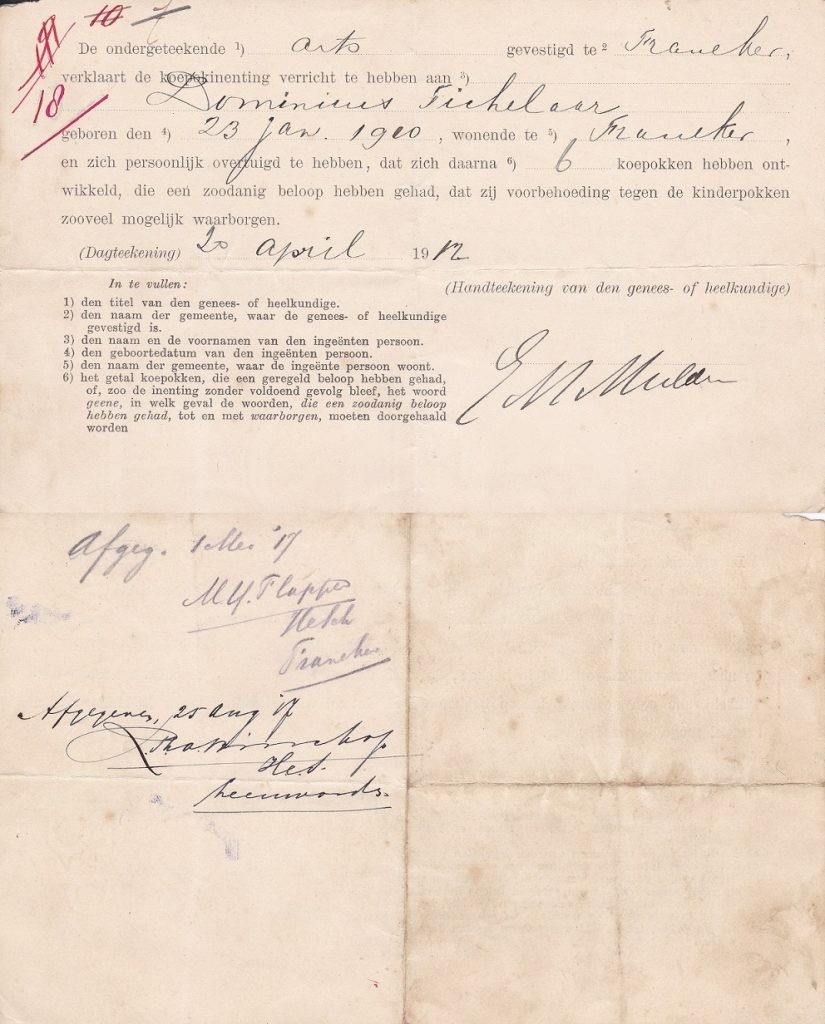 10
18
De ondergeteekende 1) arts gevestigd te 2 Franeker,
verklaart de koepokinenting verricht te hebben aan 3)
Dominicus Tichelaar
geboren den 4) 23 Jan. 1910, wonende te 5) Franeker,
en zich persoonlijk overtuigd te hebben, dat zich daarna 6) 6 koepokken hebben ont-
wikkeld, die een zoodanig beloop hebben gehad, dat zij voorbehoeding tegen de kinderpokken
zooveel mogelijk waarborgen.
(Dagteekening) 20 April 1912
In te vullen:
(Handteekening van den genees- of heelkundige)
1) den titel van den genees- of heelkundige.
2) den naam der gemeente, waar de genees- of heelkundige
gevestigd is.
3) den naam en de voornamen van den ingeënten persoon.
4) den geboortedatum van den ingeënten persoon.
5) den naam der gemeente, waar de ingeënte persoon woont.
6) het getal koepokken, die een geregeld beloop hebben gehad,
of, zoo de inenting zonder voldoend gevolg bleef, het woord
geene, in welk geval de woorden, die een zoodanig beloop
hebben gehad, tot en met waarborgen, moeten doorgehaald
worden
E M Mulder
Afgeg. 1 Mei '17
Franeker
Afgegeven, 25 Aug 17